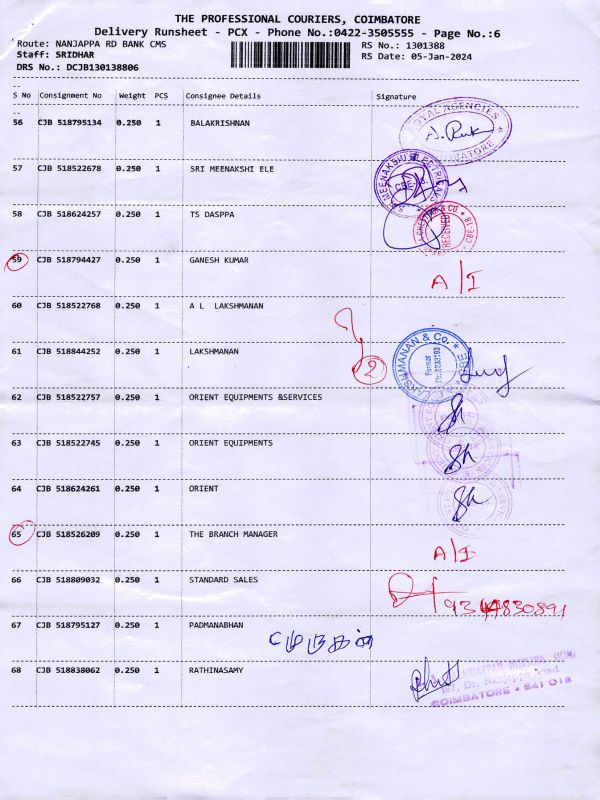 THE PROFESSIONAL COURIERS, COIMBATORE
Delivery Runsheet - PCX - Phone No.:0422-3505555 - Page No.:6
Route: NANJAPPA RD BANK CMS
RS No.: 1301388
Staff: SRIDHAR
RS Date: 05-Jan-2024
DRS No.: DCJB130138806
S No Consignment No Weight PCS Consignee Details Signature
56 CJB 518795134 0.250 1 BALAKRISHNAN
57 CJB 518522678 0.250 1 SRI MEENAKSHI ELE
MEENAKSHI ELECTRICALS
58 CJB 518624257 0.250 1 TS DASPPA
RECEIVED
59 CJB 518794427 0.250 1 GANESH KUMAR
A/I
60 CJB 518522768 0.250 1 A L LAKSHMANAN
61 CJB 518844252 0.250 1 LAKSHMANAN
2
LAKSHMANAN & Co.
62 CJB 518522757 0.250 1 ORIENT EQUIPMENTS &SERVICES
63 CJB 518522745 0.250 1 ORIENT EQUIPMENTS
64 CJB 518624261 0.250 1 ORIENT
65 CJB 518526209 0.250 1 THE BRANCH MANAGER
A/I
66 CJB 518809032 0.250 1 STANDARD SALES
67 CJB 518795127 0.250 1 PADMANABHAN
68 CJB 518838062 0.250 1 RATHINASAMY
Dr. Nanjappa Road
COIMBATORE - 641 018